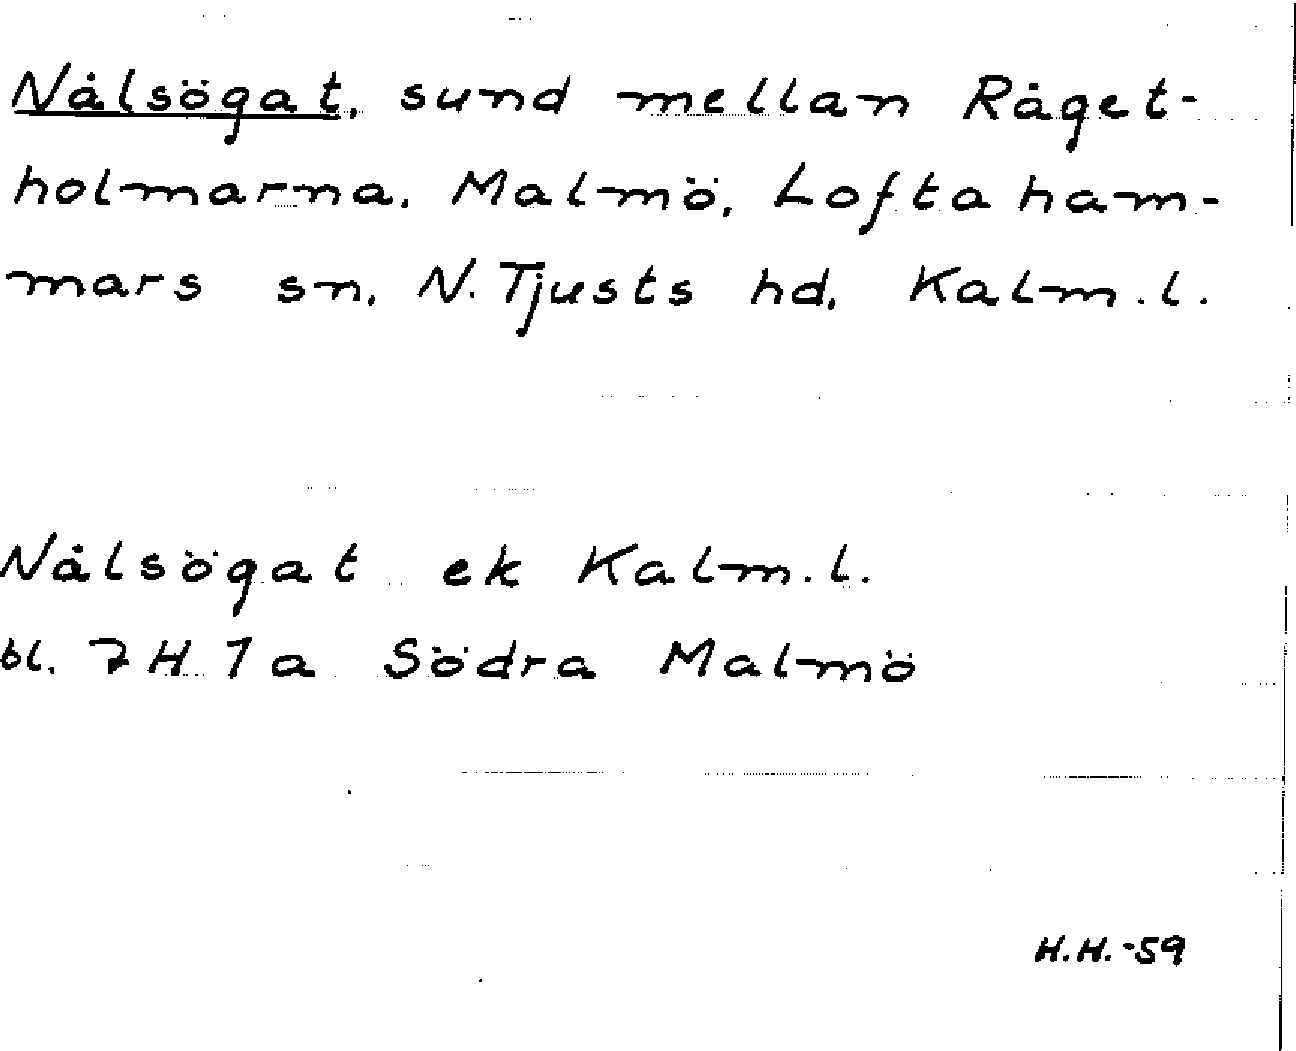 Nålsögat, sund mellan Råget-
holmarna, Malmö, Loftaham-
mars sn, N. Tjusts hd, Kalm. l.
Nålsögat ek Kalm. l.
bl. 7 H 1 a Södra Malmö
H.H. -59